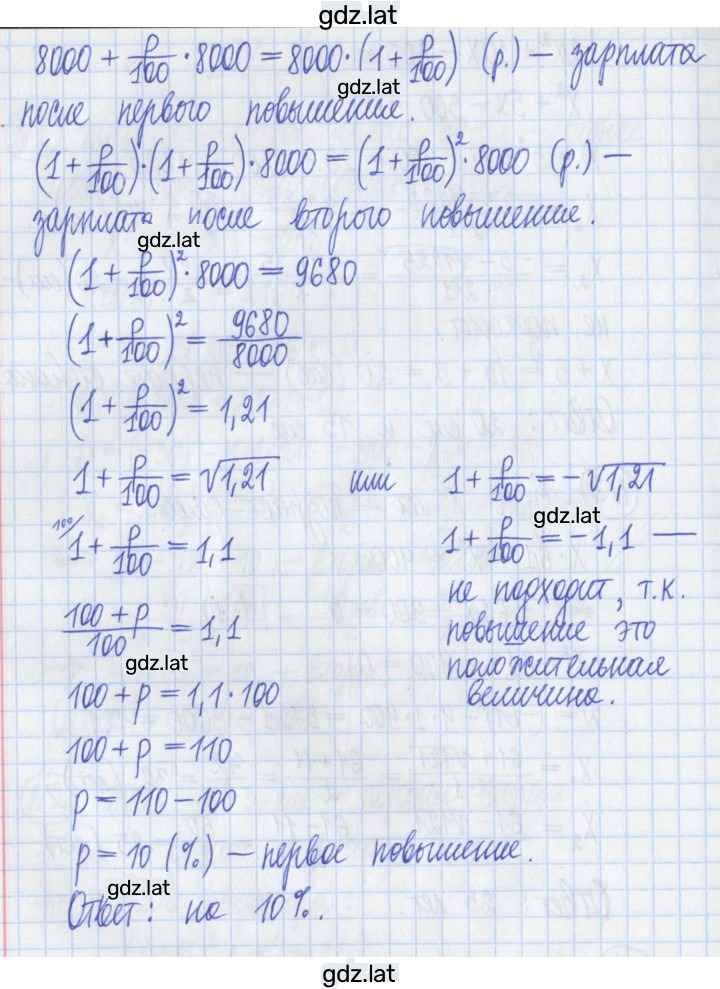 gdz.lat
8000 + p/100 · 8000 = 8000 · (1 + p/100) (р.) — зарплата
gdz.lat
после первого повышение.
(1 + p/100) · (1 + p/100) · 8000 = (1 + p/100)² · 8000 (р.) —
зарплата после второго повышение.
gdz.lat
(1 + p/100)² · 8000 = 9680
(1 + p/100)² = 9680/8000
(1 + p/100)² = 1,21
1 + p/100 = √1,21 или 1 + p/100 = -√1,21
gdz.lat
100/ 1 + p/100 = 1,1
1 + p/100 = -1,1 —
не подходит, т.к.
повышение это
положительная
величина.
100 + p/100 = 1,1
gdz.lat
100 + p = 1,1 · 100
100 + p = 110
p = 110 - 100
p = 10 (%) — первое повышение.
gdz.lat
Ответ: на 10%.
gdz.lat